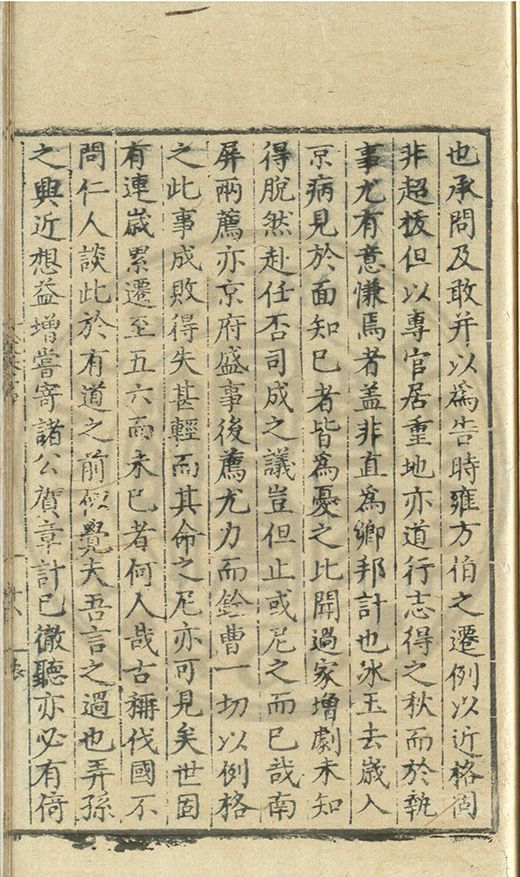 也承問及敢并以爲告時雍方伯之遷例以近格固
非超拔但以專官居重地亦道行志得之秋而於執
事尤有意慊焉者盖非直爲鄉邦計也冰玉去歲入
京病見於面知已者皆爲憂之比聞過家增劇未知
得脫然赴任否司成之議豈但止或尼之而已哉南
屏兩薦亦京府盛事後薦尤力而銓曹一切以例格
之此事成敗得失甚輕而其命之厄亦可見矣世固
有連歲累遷至五六而未已者何人哉古稱伐國不
問仁人談此於有道之前但覺夫吾言之過也弄孫
之興近想益增嘗寄諸公賀章計已徹聽亦必有倚